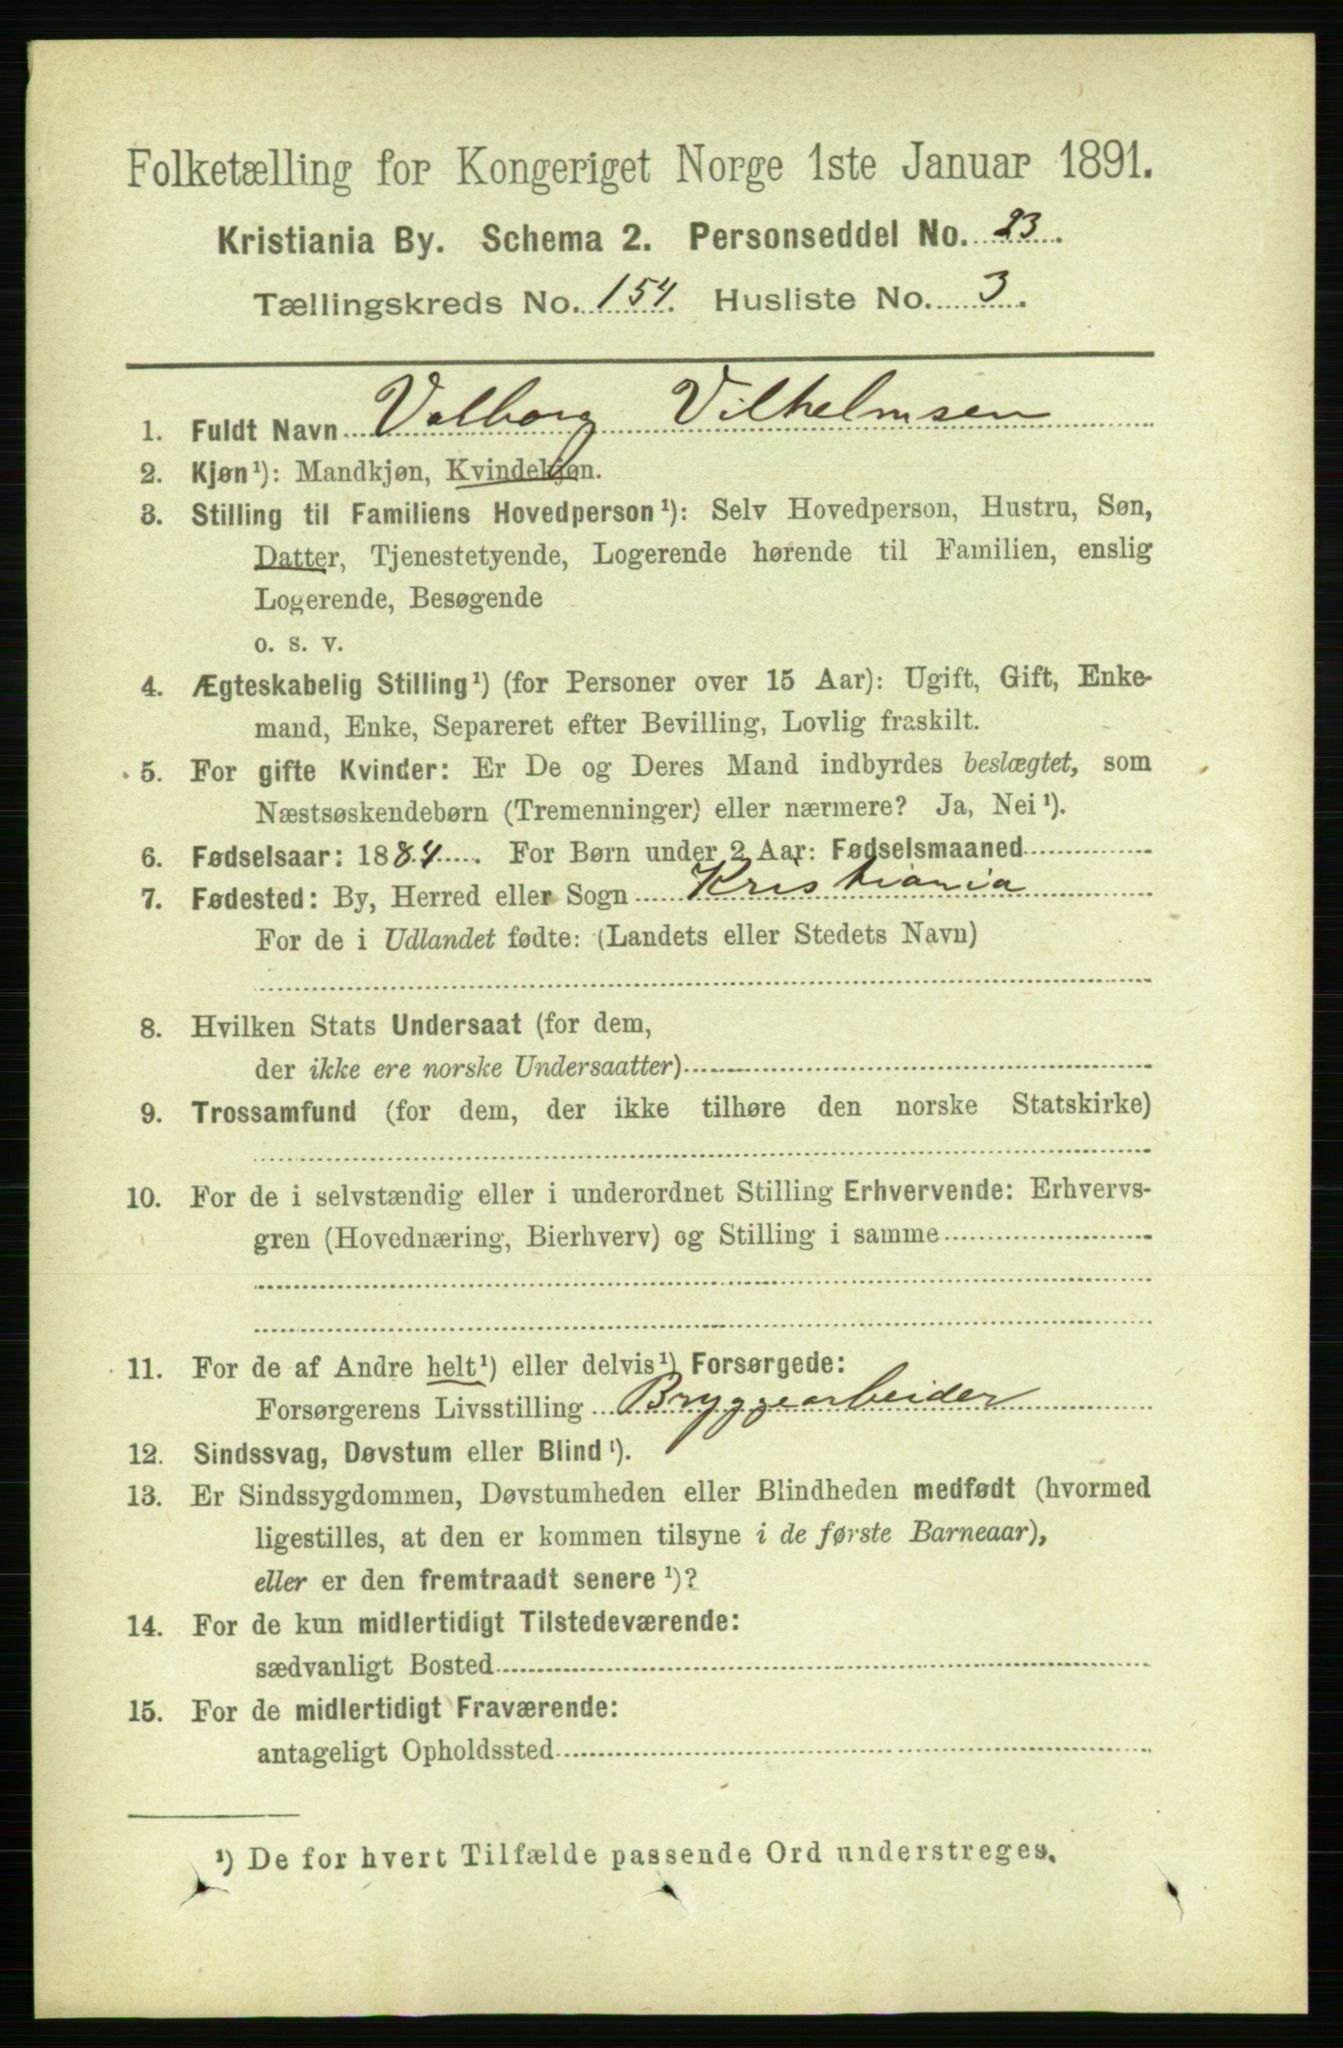 Folketælling for Kongeriget Norge 1ste Januar 1891.
Kristiania By. Schema 2. Personseddel No. 23.
Tællingskreds No. 154. Husliste No. 3.
1. Fuldt Navn Valborg Vilhelmsen
2. Kjøn¹): Mandkjøn, Kvindekjøn.
3. Stilling til Familiens Hovedperson¹): Selv Hovedperson, Hustru, Søn,
Datter, Tjenestetyende, Logerende hørende til Familien, enslig
Logerende, Besøgende
o. s. v.
4. Ægteskabelig Stilling¹) (for Personer over 15 Aar): Ugift, Gift, Enke-
mand, Enke, Separeret efter Bevilling, Lovlig fraskilt.
5. For gifte Kvinder: Er De og Deres Mand indbyrdes beslægtet, som
Næstsøskendebørn (Tremenninger) eller nærmere? Ja, Nei¹).
6. Fødselsaar: 1884. For Børn under 2 Aar: Fødselsmaaned
7. Fødested: By, Herred eller Sogn Kristiania
For de i Udlandet fødte: (Landets eller Stedets Navn)
8. Hvilken Stats Undersaat (for dem,
der ikke ere norske Undersaatter)
9. Trossamfund (for dem, der ikke tilhøre den norske Statskirke)
10. For de i selvstændig eller i underordnet Stilling Erhvervende: Erhvervs-
gren (Hovednæring, Bierhverv) og Stilling i samme
11. For de af Andre helt¹) eller delvis¹) Forsørgede:
Forsørgerens Livsstilling Bryggearbeider
12. Sindssvag, Døvstum eller Blind¹).
13. Er Sindssygdommen, Døvstumheden eller Blindheden medfødt (hvormed
ligestilles, at den er kommen tilsyne i de første Barneaar),
eller er den fremtraadt senere¹)?
14. For de kun midlertidigt Tilstedeværende:
sædvanligt Bosted
15. For de midlertidigt Fraværende:
antageligt Opholdssted
¹) De for hvert Tilfælde passende Ord understreges.